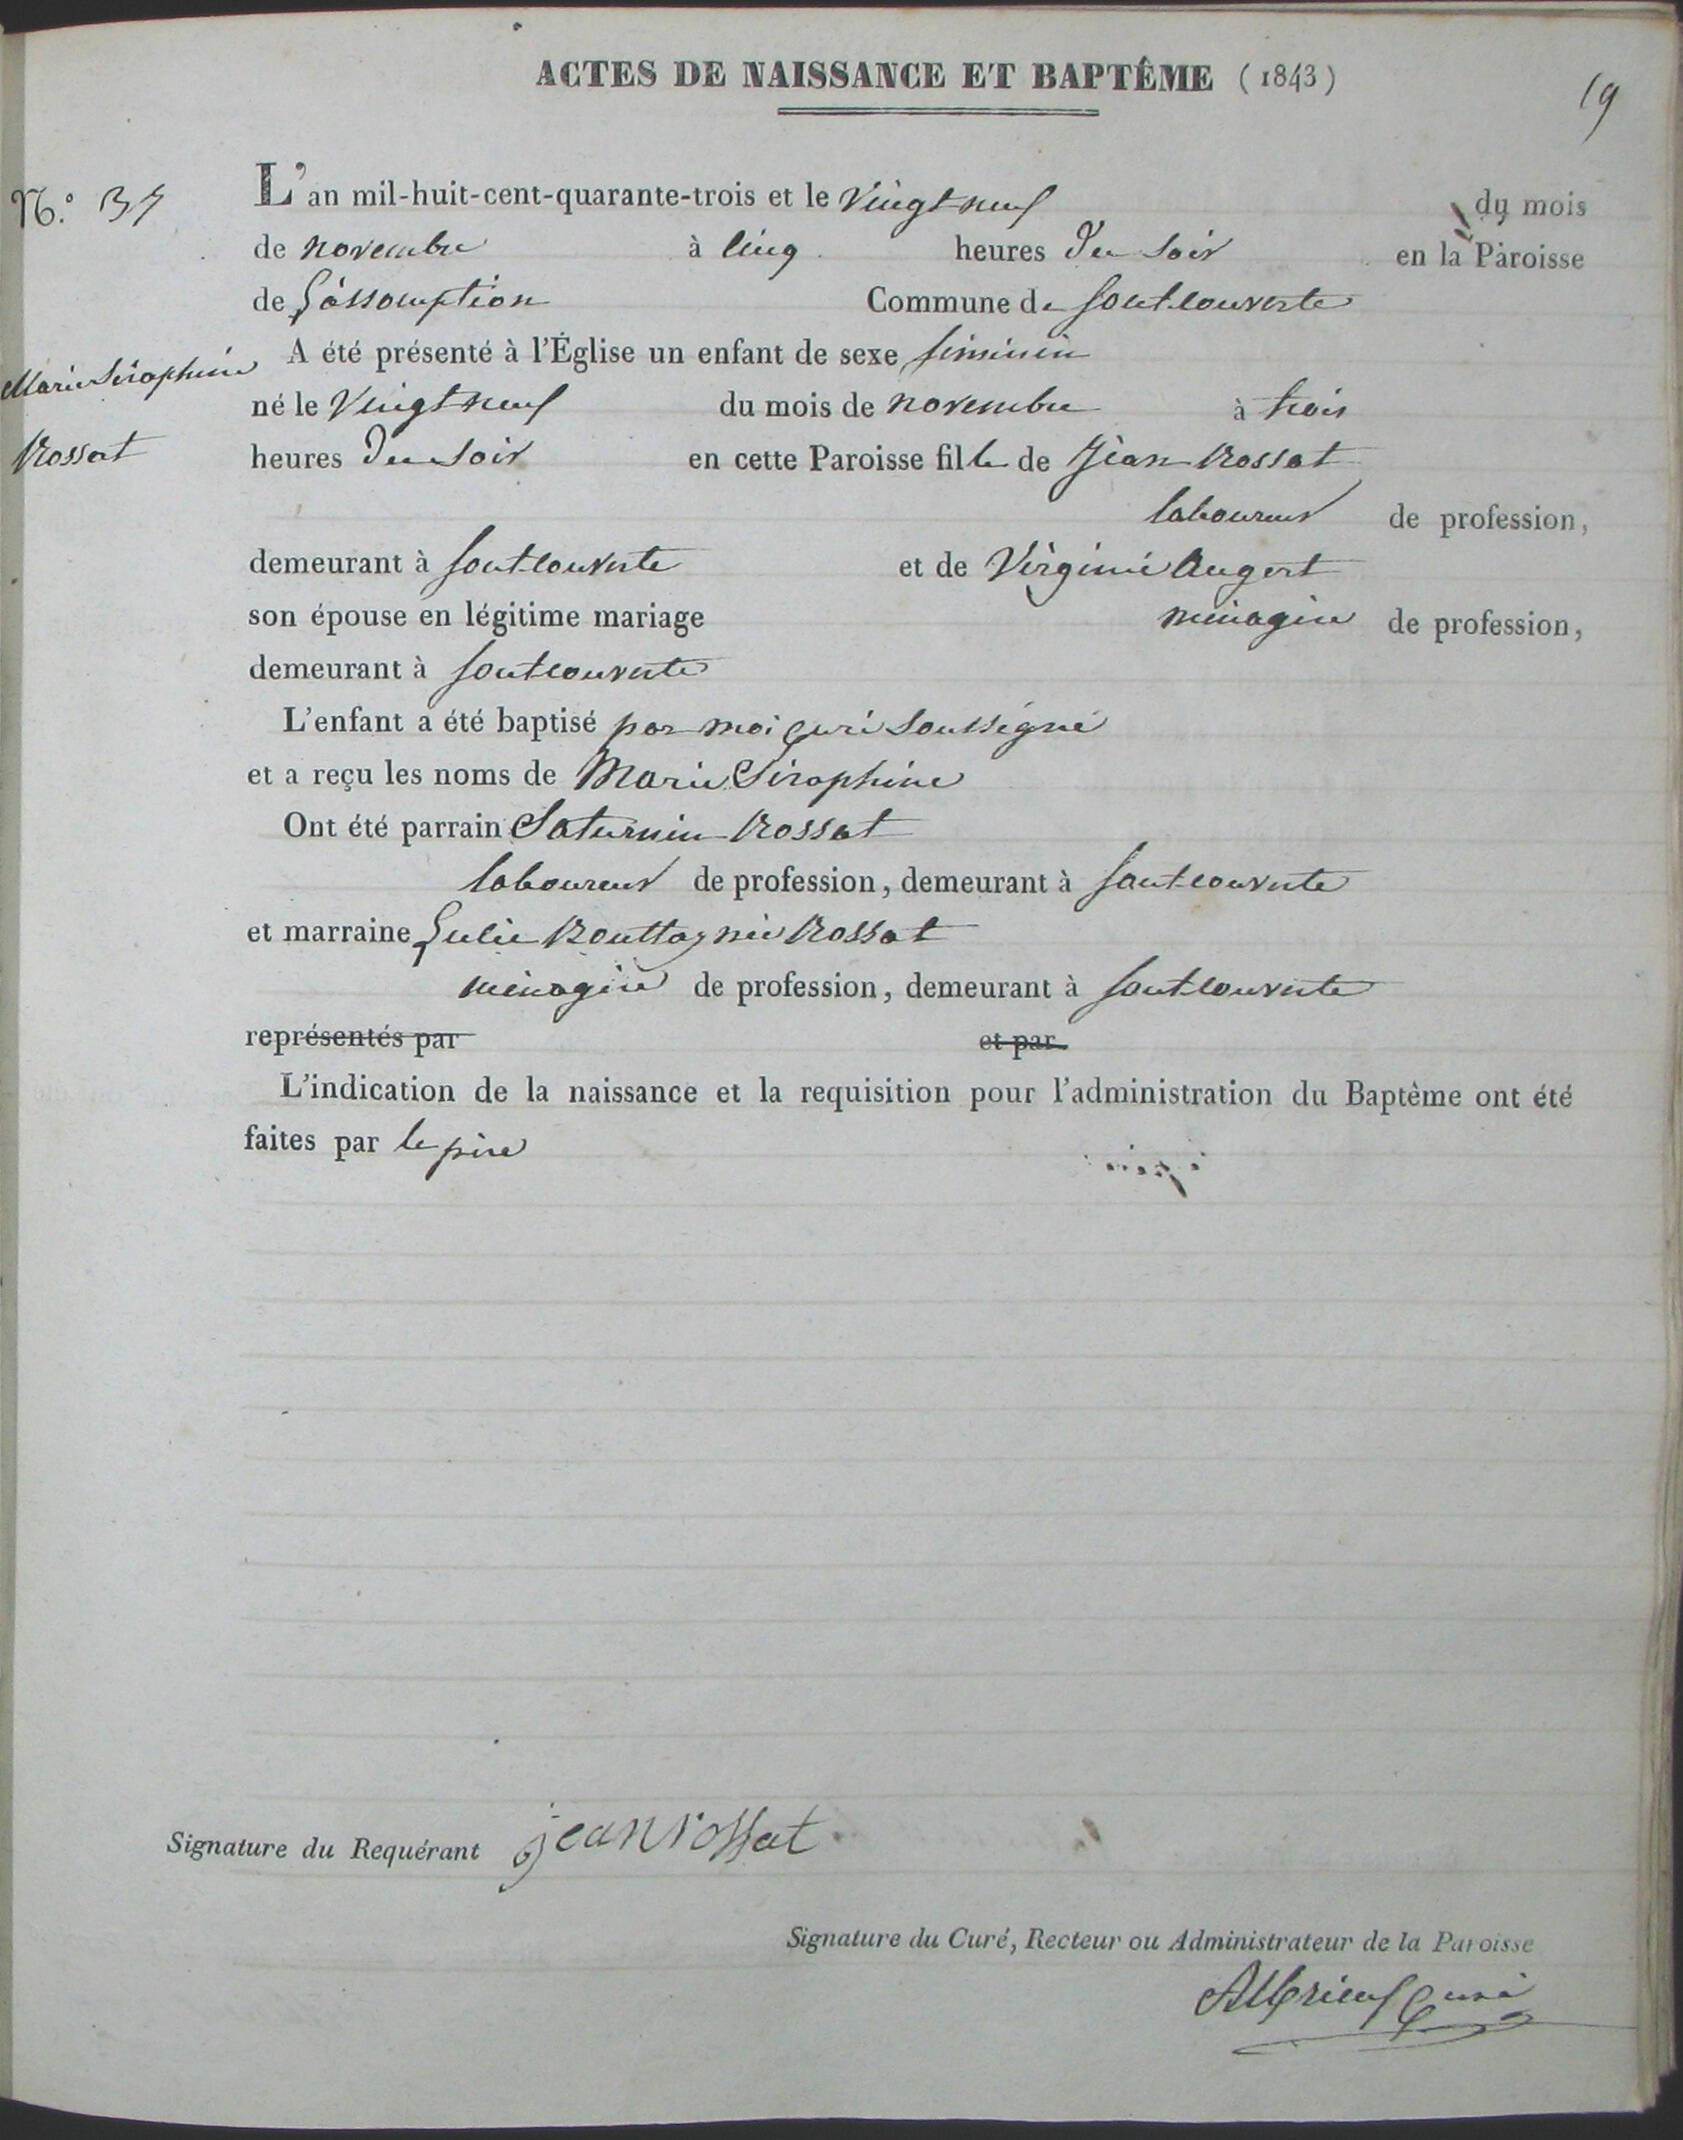 ACTES DE NAISSANCE ET BAPTÊME (1843)
19
N.° 37
L'an mil-huit-cent-quarante-trois et le vingt neuf du mois
de novembre à cinq heures du soir en la Paroisse
de L'assomption Commune de fontcouverte
Marie Séraphine
A été présenté à l'Église un enfant de sexe féminin
né le vingt neuf du mois de novembre à trois
Rossat
heures du soir en cette Paroisse fille de Jean Rossat
laboureur de profession,
demeurant à fontcouverte et de Virginie Augert
son épouse en légitime mariage ménagère de profession,
demeurant à fontcouverte
L'enfant a été baptisé par moi curé soussigné
et a reçu les noms de Marie Séraphine
Ont été parrain Saturnin Rossat
laboureur de profession, demeurant à fontcouverte
et marraine Julie Rossat
ménagère de profession, demeurant à fontcouverte
représentés par et par
L'indication de la naissance et la requisition pour l'administration du Baptème ont été
faites par le père
Signature du Requérant jean rossat
Signature du Curé, Recteur ou Administrateur de la Paroisse
curé